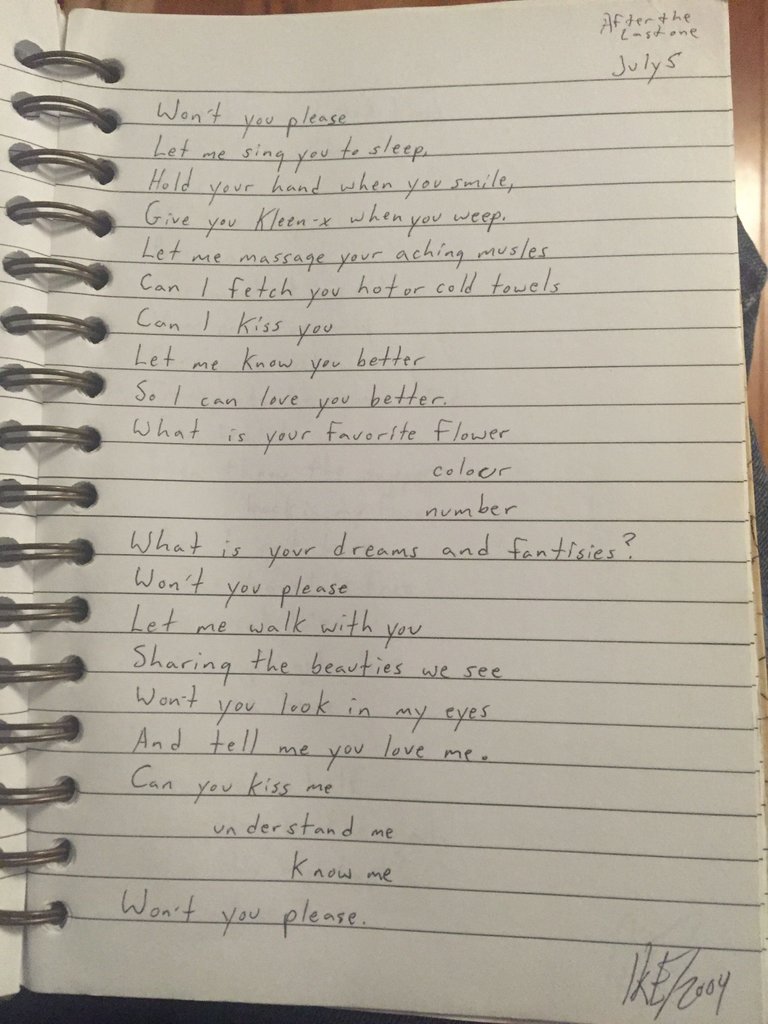 After the
Last one
July 5
Won't you please
Let me sing you to sleep,
Hold your hand when you smile,
Give you Kleen-x when you weep.
Let me massage your aching musles
Can I fetch you hot or cold towels
Can I kiss you
Let me know you better
So I can love you better.
What is your favorite flower
colour
number
What is your dreams and fantisies?
Won't you please
Let me walk with you
Sharing the beauties we see
Won't you look in my eyes
And tell me you love me.
Can you kiss me
understand me
know me
Won't you please.
IKE/2004